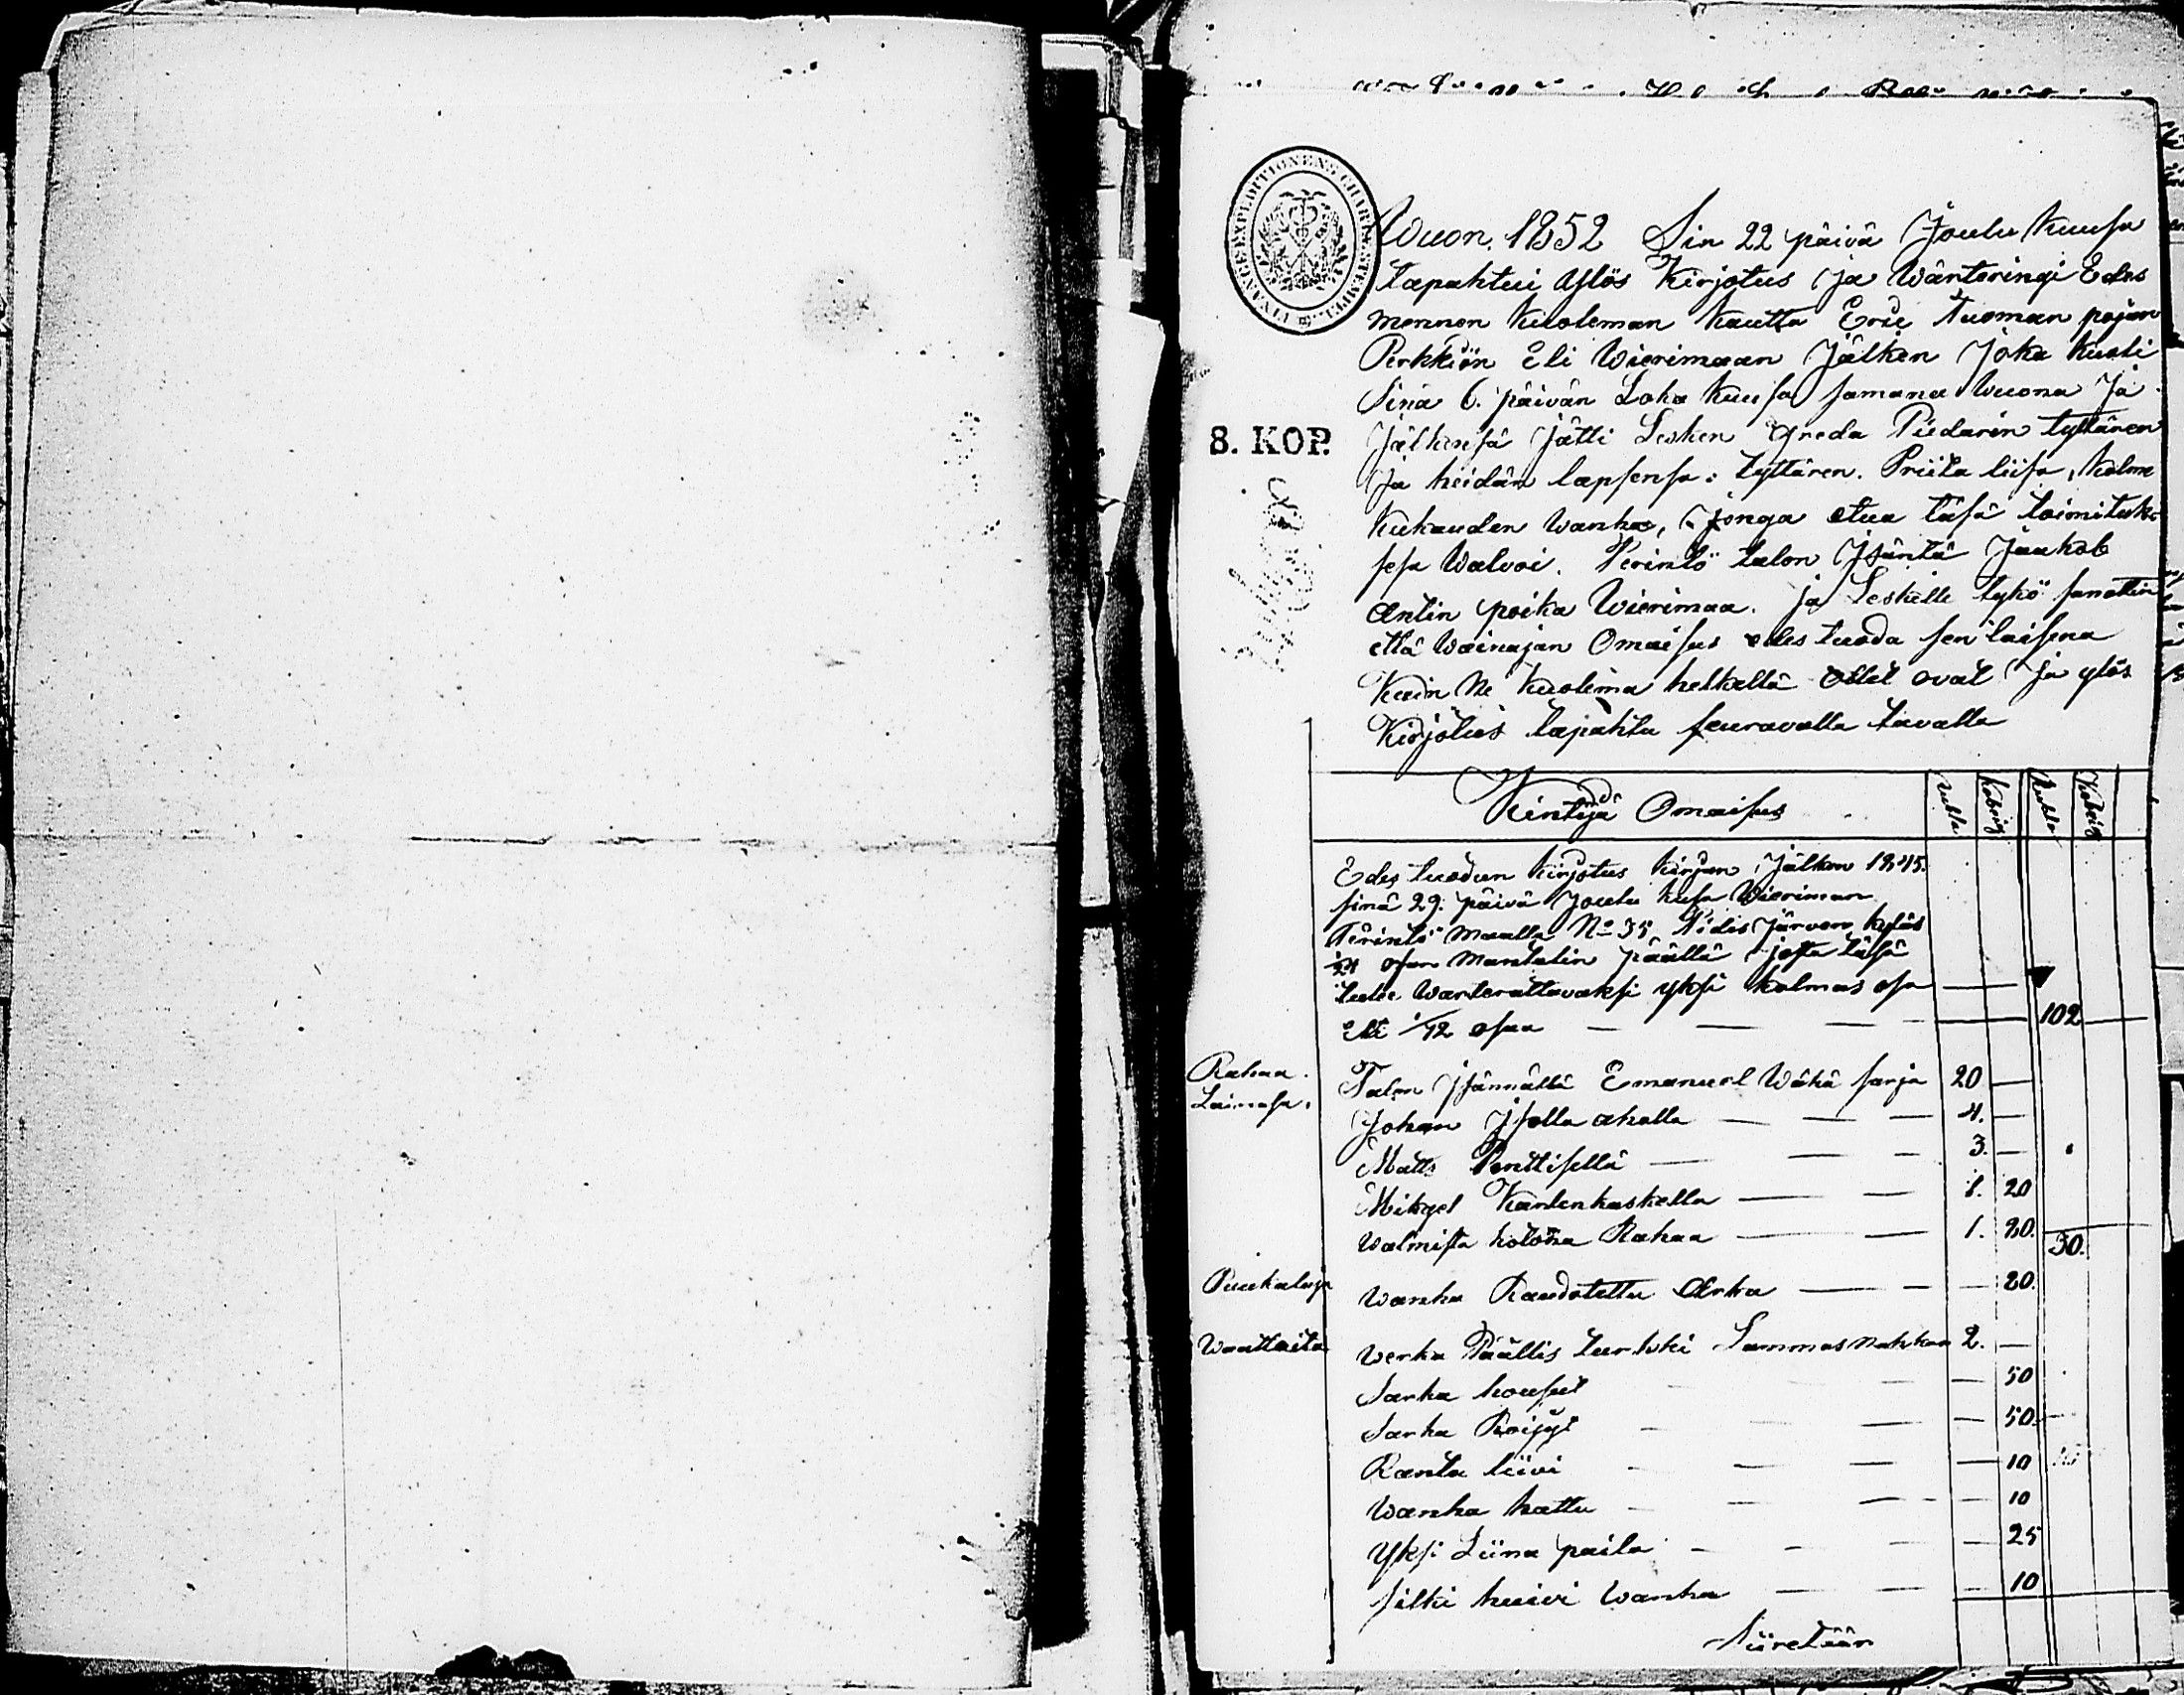 FINANCE EXPEDITIONENS CHARTÆ STEMPEL
8. KOP.
Wuon. 1852 Sin 22 päivä Joulu Kuusa
tapahtui Ylös Kirjotus ja Wärteringi Edes
mennen Kuoleman Kautta Eric Tuoman pojan
Perkkiön Eli Wierimaan Jälken Joka kuoli
Sinä 6. päivän Loka Kuusa samana Wuona Ja
Jälkensä Jätti Lesken Greda Piedarin tyttären
Ja heidän lapsensa: tyttären. Priita liisa, kolme
Kukauden Wanha, Jonga etua täsä toimituk-
sesa Walvoi. Perintö talon Isäntä Jaakob
Antin poika Wierimaa. ja Leskelle tykö sanottin
että Wainajan Omaisus edes tuoda sen laisena
Kuin Ne Kuolema hetkellä Ollet ovat Ja ylös
Kirjotus tapahtu seuravalla tavalla
Kintijä Omaisus
Rubla Kobeig Rubla Kobeig
Edes tuodun Kirjotus Kirjan Jälken 1845.
sinä 29. päivä Joulu kusa Wieriman
Perintö maalla No 35 Pidis Järven kyläs
1/24 osan Mantalin päällä josta täsä
tulee Warterattavaksi yksi kolmas osa
eli 1/72 osaa — — — 102 —
Rahaa
Lainasa.
Talon Isännällä Emanuel Wähä sarja 20 —
Johan Isolla aholla — — — 4. —
Matts Penttisellä — — — 3. —
Mikael Kartenkaskella — — 1. 20
Walmista kotona Rahaa — — 1. 80. 30.
Puukaluja
Wanha Raudotettu Arka — — — 20.
Waatteita
Verka Päällis turkki Lammasnahkaa 2. —
Sarka housut — — — 50
Sarka Röijyt — — — 50.
Ranta liivi — — — 10
Wanha hattu — — — 10
Yksi Liina paita — — — 25
silki huivi Wanha — — — 10
Siiretään